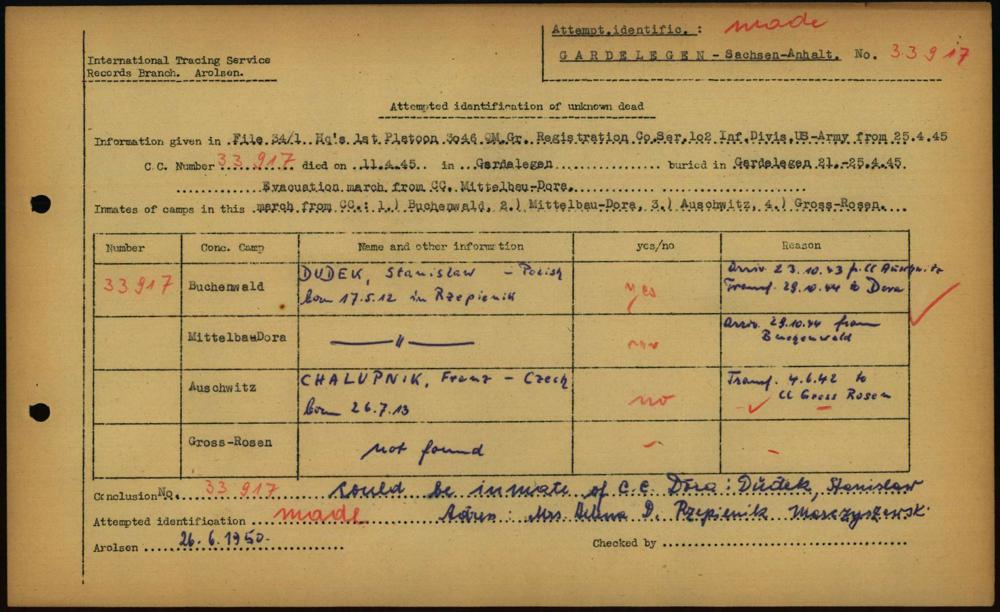 Attempt.identific. : made
GARDELEGEN - Sachsen-Anhalt. No. 33917
International Tracing Service
Records Branch. Arolsen.
Attempted identification of unknown dead
Information given in File 34/1 Hq's 1st Platoon 3o46 QM.Gr. Registration Co.Ser.1o2 Inf.Divis.US-Army from 25.4.45
C.C. Number 33917 died on 11.4.45 in Gardelegen buried in Gardelegen 21.-25.4.45
Evacuation march from CC. Mittelbau-Dora.
Inmates of camps in this march from CC.: 1.) Buchenwald, 2.) Mittelbau-Dora, 3.) Auschwitz, 4.) Gross-Rosen.
Number Conc. Camp Name and other information yes/no Reason
33917 Buchenwald DUDEK, Stanislaw - Polish born 17.5.12 in Rzepienik yes Arriv. 23.10.43 f. CC Auschwitz Transf. 29.10.44 to Dora
Mittelbau-Dora — " — Arriv. 29.10.44 from
Auschwitz CHALUPNIK, Franz - Czech born 26.7.13 no Transf. 4.6.42 to CC Gross Rosen
Gross-Rosen not found - -
Conclusion No. 33 917 could be inmate of C.C. Dora: Dudek, Stanislaw
Attempted identification made Mrs D. Rzepienik
Arolsen 26.6.1950. Checked by